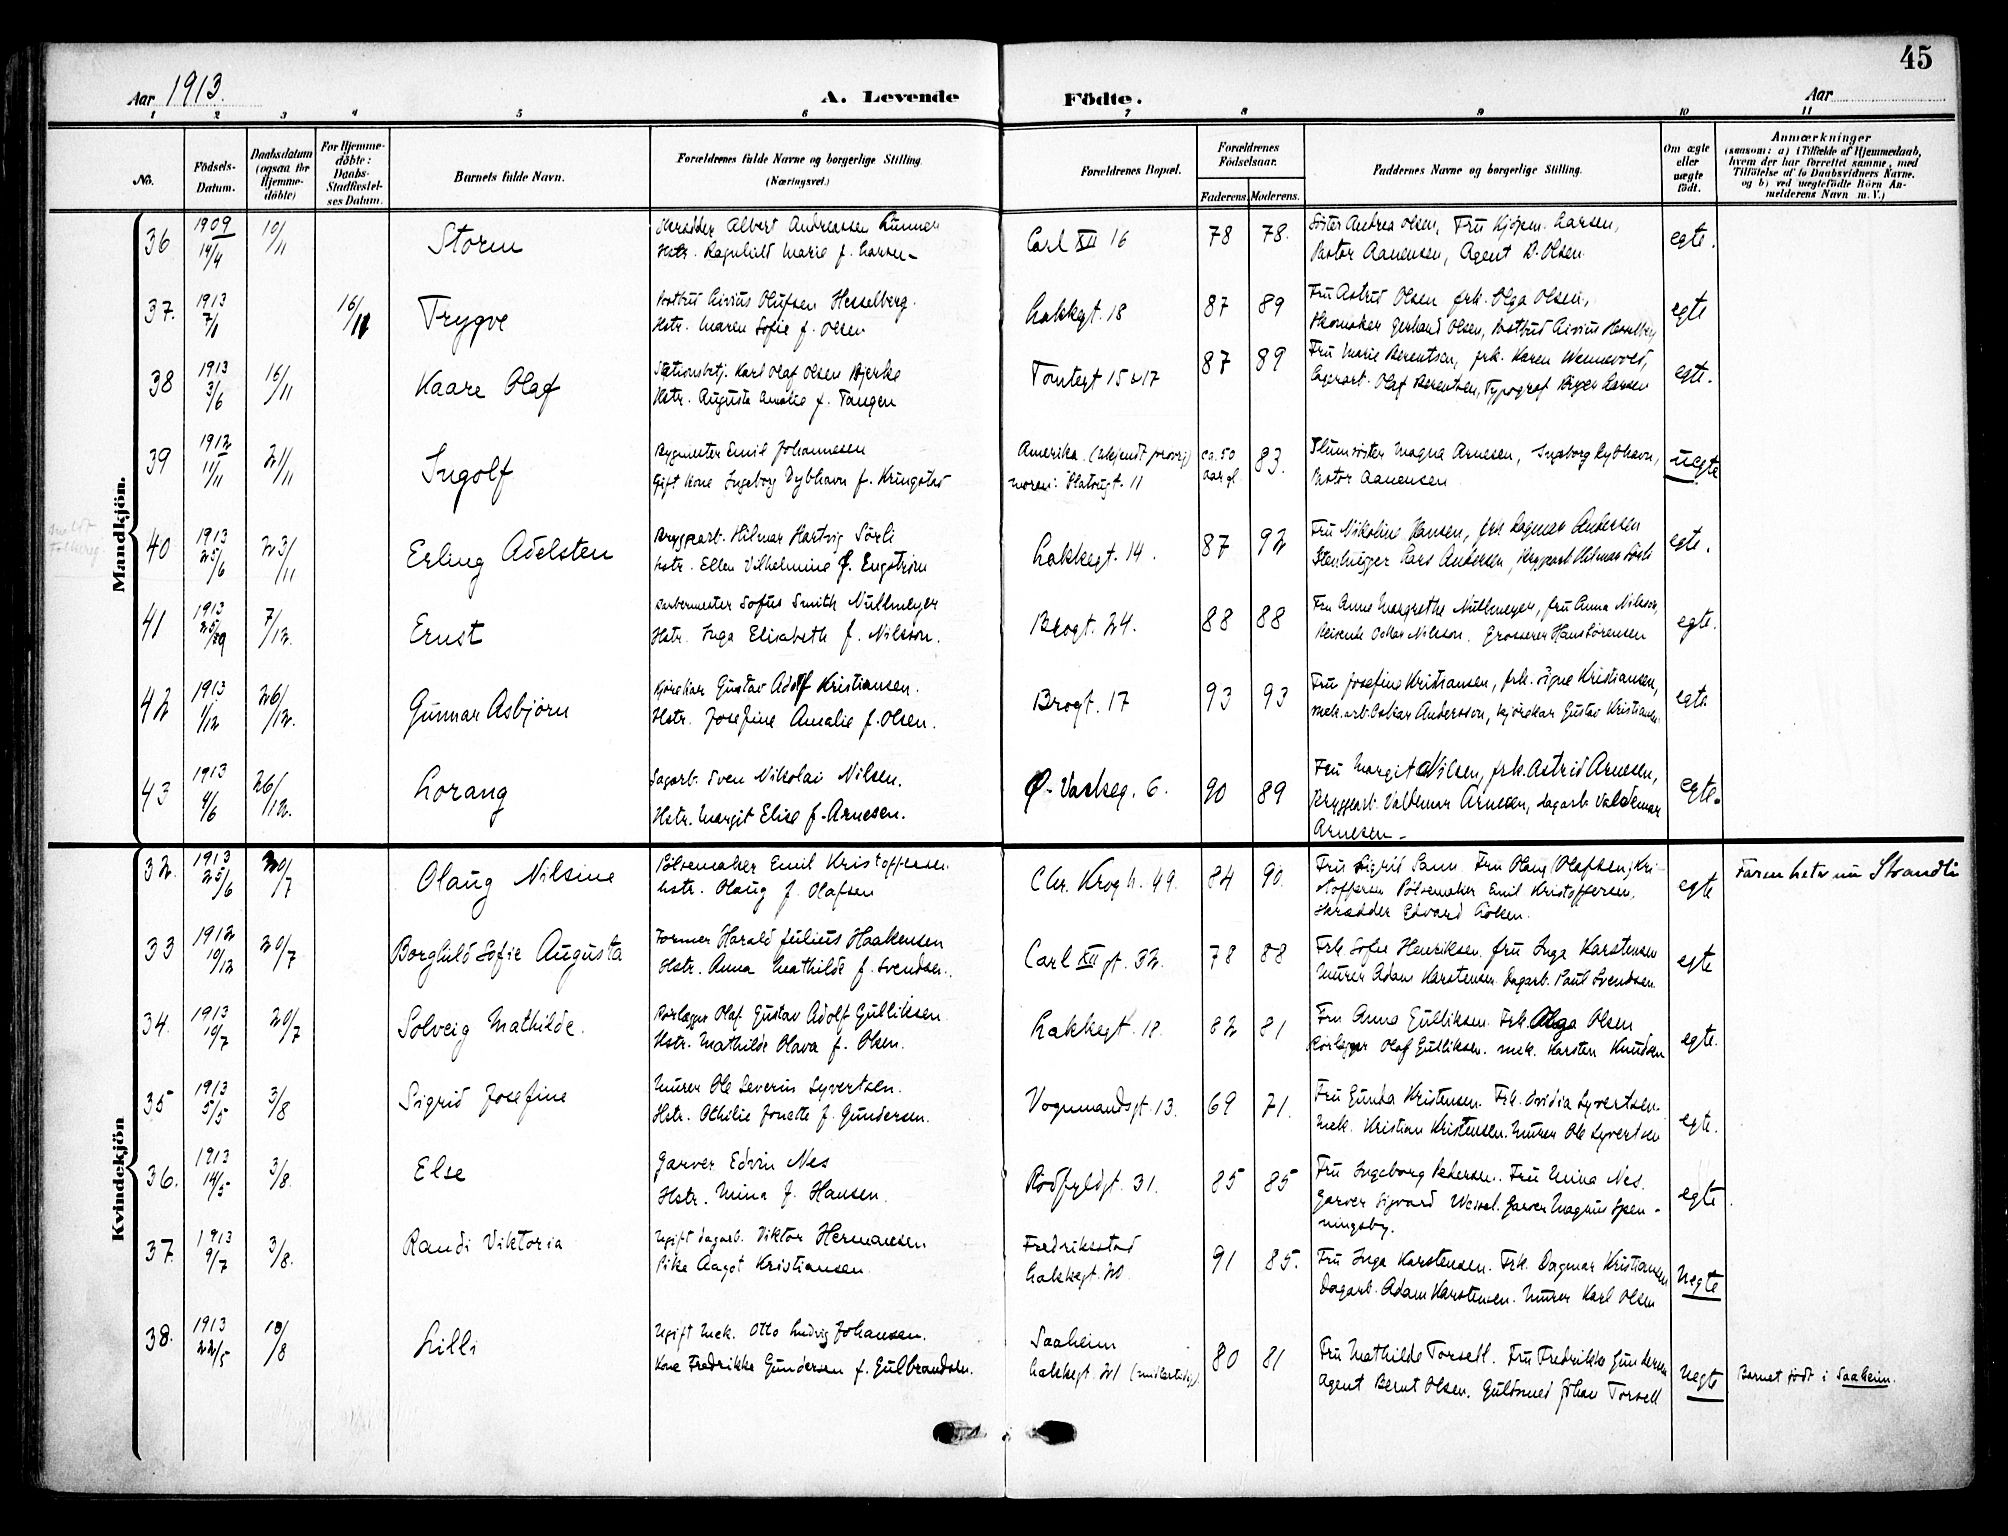 45
Aar 1913.
A. Levende
Födte.
Aar
1 2 3 4 5 6 7 8 9 10 11
No.
Födsels-
Datum.
Daabsdatum
(ogsaa for
Hjemme-
döbte)
For Hjemme-
döbte:
Daabs-
Stadfæstel-
ses Datum.
Barnets fulde Navn.
Forældrenes fulde Navne og borgerlige Stilling.
(Næringsvei.)
Forældrenes Bopæl.
Forældrenes
Födselsaar.
Faderens. Moderens.
Faddernes Navne og borgerlige Stilling.
Om ægte
eller
uægte
födt.
Anmærkninger
(saasom: a) i Tilfælde af Hjemmedaab,
hvem der har forrettet samme, med
Tilföielse af to Daabsvidners Navne,
og b) ved uægtefödte Börn An-
melderens Navn m. V.)
Mandkjön.
36 1909 14/4 10/11 Storm Skrædder Albert Andreassen
Hstr. Ragnhild Marie f. Larsen
Carl XII 16 78 78.
Söster Andrea Olsen, Fru Larsen,
Pastor Aanensen, Agent D. Olsen.
egte.
37. 1913 7/1 16/11 Trygve Olufsen Hesselberg.
Hstr. Maren Sofie f. Olsen
Lakkegt. 18 87 89
Fru Astrid Olsen frk. Olga Olsen,
Skomaker Gerhard Olsen, Hesselberg
egte
38 1913 3/6 16/11 Kaare Olaf Stationsbetj. Karl Olaf Olsen Bjerke
Hstr. Augusta Amalie f. Tangen
Tomtegt 15 17 87 89
Fru Marie Berentsen, frk. Karen Wennevold,
Lagerarb. Olaf Berentsen, Typograf Birger Larsen
egte.
39 1912 11/11 21/11 Ingolf Bygmester Emil Johannesen
Gift Kone Ingeborg Dybhavn f. Kringstad
Amerika.
Moren: Platougt. 11
ca. 50
aar gl. 83.
Slumsöster Magna Arnesen, Ingeborg Dybhavn,
Pastor Aanensen
uegte
40 1913 25/6 23/11 Erling Adelsten Bryggearb. Hilmar Hartvig Sörli
Hstr. Ellen Vilhelmine f. Engström
Lakkegt. 14. 87 92
Fru Nikoline Hansen, frk Dagmar Andersen
Stenhugger Lars Andersen, Bryggearb Hilmar Sörli
egte.
41 1913 7/12. Ernst Farvermester Sofus Smith Nullmeyer
Hstr. Inga Elisabeth f. Nilsson.
Brogt. 24. 88 88
Fru Anne Margrethe Nullmeyer, fru Anna Nilsson,
Reisende Oskar Nilsson. Grosserer Hans Sörensen
egte.
42 1913 1/12 26/12. Gunnar Asbjörn Kjörekar Gustav Adolf Kristiansen.
Hstr. Josefine Amalie f. Olsen.
Brogt. 17 93 93
Fru Josefine Kristiansen, frk. Signe Kristiansen,
mek. arb. Oskar Andersson, kjörekar Gustav Kristiansen
egte.
43 1913 4/6 26/12. Lorang Sagarb. Sven Nikolai Nilsen.
Hstr. Margit Elise f. Arnesen.
Ø. Vaskeg. 6. 90 89
Fru Margit Nilsen, frk. Astrid Arnesen,
Bryggearb. Valdemar Arnesen, Sagarb Valdemar
Arnesen.
egte.
Kvindekjön
32. 1913 25/6 20/7 Olaug Nilsine Pölsemaker Emil Kristoffersen
hstr. Olaug f. Olafsen
Chr. Krogh. 49. 84 90.
Fru Sigrid Fru Olaug (Olafsen) Kri-
stoffersen Pölsemaker Emil Kristoffersen.
Skrædder Edvard Olsen.
egte
Faren heter nu Strandli
33 1912 10/12 20/7 Borghild Sofie Augusta Former Harald Julius Haakensen
Hstr. Anna Mathilde f. Svendsen.
Carl XII gt. 32. 78 88
Frk Sofie Henriksen. fru Inga Karstensen
Murer Adam Karstensen. Dagarb. Paul Svendsen.
egte
34. 1913 10/7 20/7 Solveig Mathilde. Rörlægger Olaf Gustav Adolf Gulliksen.
Hstr. Mathilde Olava f. Olsen.
Lakkegt. 18. 82 81
Fru Anna Gulliksen. Frk. Olga Olsen
Rörlegger Olaf Gulliksen. mek. Karsten Knudsen
egte.
35 1913 5/5 3/8 Sigrid Josefine Murer Ole Severin Syvertsen.
Hstr. Othilie Jonette f. Gundersen.
Vognmandsgt. 13. 69 71.
Fru Gunda Kristensen. Frk. Ovidia Syvertsen.
Mek. Kristian Kristensen. Murer Ole Syvertsen
egte.
36. 1913 14/5 3/8. Else Garver Edvin Nes
Hstr. Mina f. Hansen.
Rödfyldgt. 31. 85 85
Fru Ingeborg Pedersen. Fru Mina Nes.
Garver Sigvard Wessel. Garver Magnus Spen-
ningsby.
egte.
37. 1913 9/7 3/8. Randi Viktoria Ugift dagarb. Viktor Hermansen
Pike Aagot Kristiansen.
Fredriksstad
Lakkegt. 20. 91 85.
Fru Inga Karstensen. Frk. Dagmar Kristiansen
Dagarb. Adam Karstensen. Murer Karl Olsen
Uegte
38. 1913 22/5 10/8 Lilli Ugift Mek. Otto Ludvig Johansen.
Kone Fredrikke Gundersen f. Gulbrandsen.
Saaheim
Lakkegt. 21 (midlertidigt) 80 81
Fru Mathilde Torsell. Fru Fredrikke Gundersen
Agent Bernt Olsen. Guldsmed Johan Torsell
Uegte
Barnet födt i Saaheim.